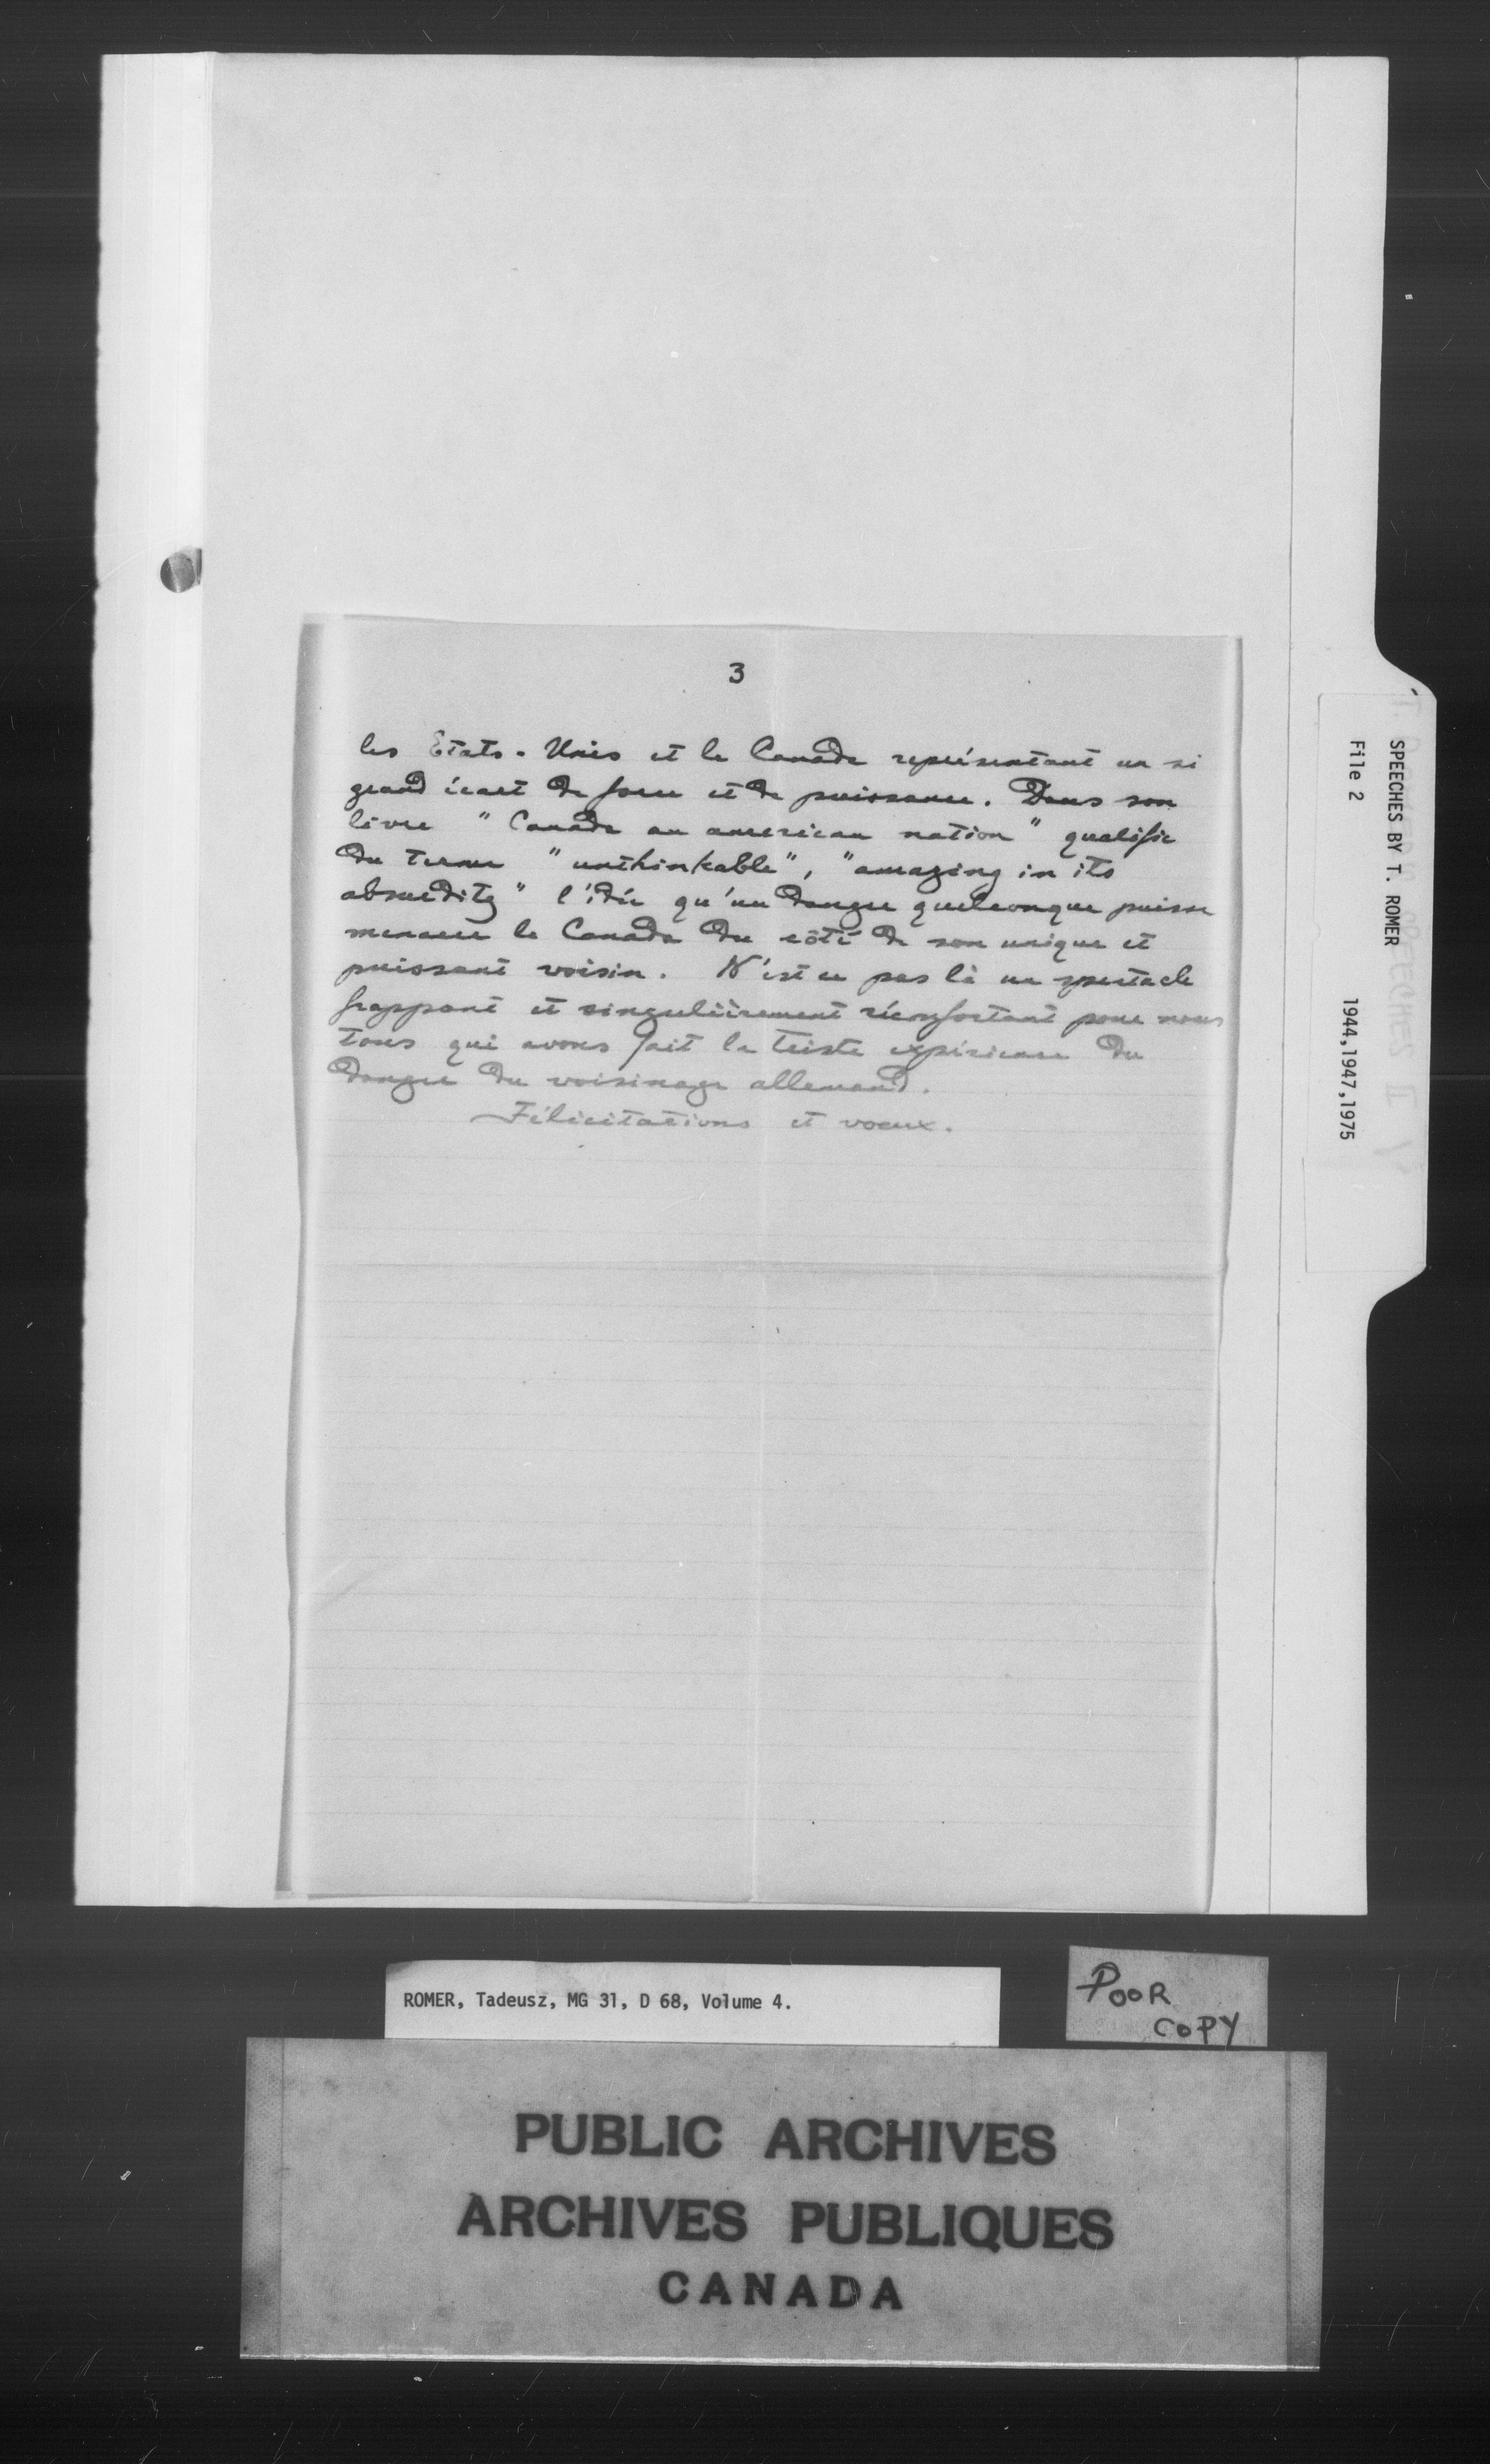 3
les Etats-Unis et le Canada représentant un si
grand écart de force et de puissance. Dans son
livre "Canada an american nation" qualifie
du terme "unthinkable", "amazing in its
absurdity" l'idée qu'un danger quelconque puisse
menacer le Canada du côté de son unique et
puissant voisin. N'est ce pas là un spectacle
frappant et singulièrement réconfortant pour nous
tous qui avons fait la triste expérience du
danger du voisinage allemand.
Félicitations et voeux.
SPEECHES BY T. ROMER
File 2 1944,1947,1975
ROMER, Tadeusz, MG 31, D 68, Volume 4.
POOR
COPY
PUBLIC ARCHIVES
ARCHIVES PUBLIQUES
CANADA